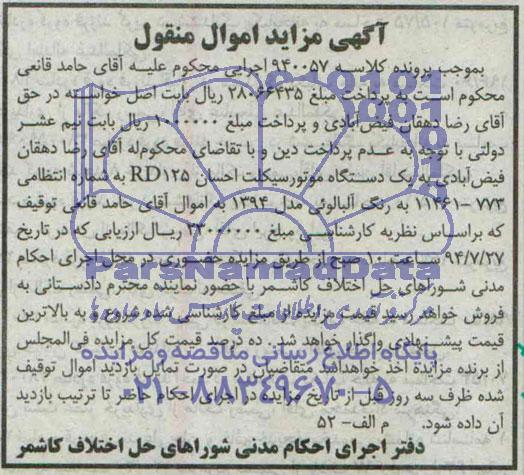 آگهی مزاید اموال منقول
بموجب پرونده کلاسه ۹۴۰۰۵۷ اجرایی محکوم علیه آقای حامد قانعی
محکوم است به پرداخت مبلغ ۲۸۰۶۶۴۳۵ ریال بابت اصل خواسته در حق
آقای رضا دهقان فیض‌آبادی و پرداخت مبلغ ۱۰۰۰۰۰۰ ریال بابت نیم عشر
دولتی با توجه به عدم پرداخت دین و با تقاضای محکوم‌له آقای رضا دهقان
فیض‌آبادی به یک دستگاه موتورسیکلت احسان RD۱۲۵ به شماره انتظامی
۷۷۳ – ۱۱۴۶۱ به رنگ آلبالوئی مدل ۱۳۹۴ به اموال آقای حامد قانعی توقیف
که براساس نظریه کارشناسی مبلغ ۲۳۰۰۰۰۰۰ ریال ارزیابی که در تاریخ
۹۴/۷/۲۷ ساعت ۱۰ صبح از طریق مزایده حضوری در محل اجرای احکام
مدنی شوراهای حل اختلاف کاشمر با حضور نماینده محترم دادستانی به
فروش خواهد رسید قیمت مزایده از مبلغ کارشناسی شده شروع و به بالاترین
قیمت پیشنهادی واگذار خواهد شد. ده درصد قیمت کل مزایده فی‌المجلس
از برنده مزایده اخذ خواهد‌شد متقاضیان در صورت تمایل بازدید اموال توقیف
شده ظرف سه روز قبل از تاریخ مزایده در اجرای احکام حاضر تا ترتیب بازدید
آن داده شود. م الف– ۵۲
دفتر اجرای احکام مدنی شوراهای حل اختلاف کاشمر
ParsNamadData
پایگاه اطلاع رسانی مناقصه و مزایده
۰۲۱-۸۸۳۴۹۶۷۰-۵